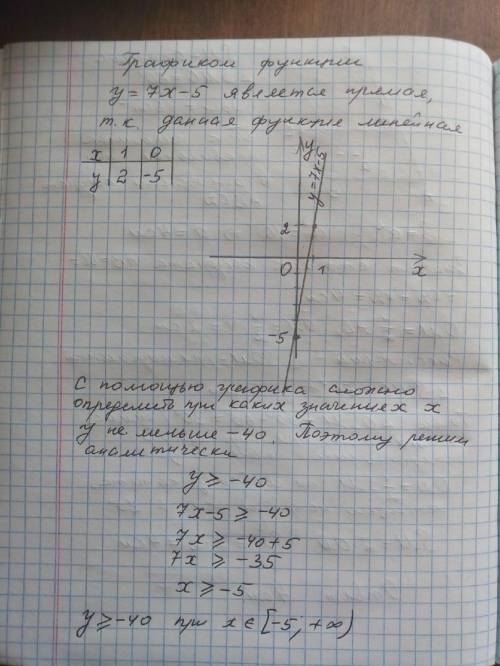 Графиком функции
y=7x-5 является прямая,
т.к. данная функция линейная
x | 1 | 0
y | 2 | -5
y
y=7x-5
2
0 1 x
-5
С помощью графика сложно
определить при каких значениях x
y не меньше -40. Поэтому решим
аналитически
y ⩾ -40
7x-5 ⩾ -40
7x ⩾ -40+5
7x ⩾ -35
x ⩾ -5
y ⩾ -40 при x ∈ [-5, +∞)